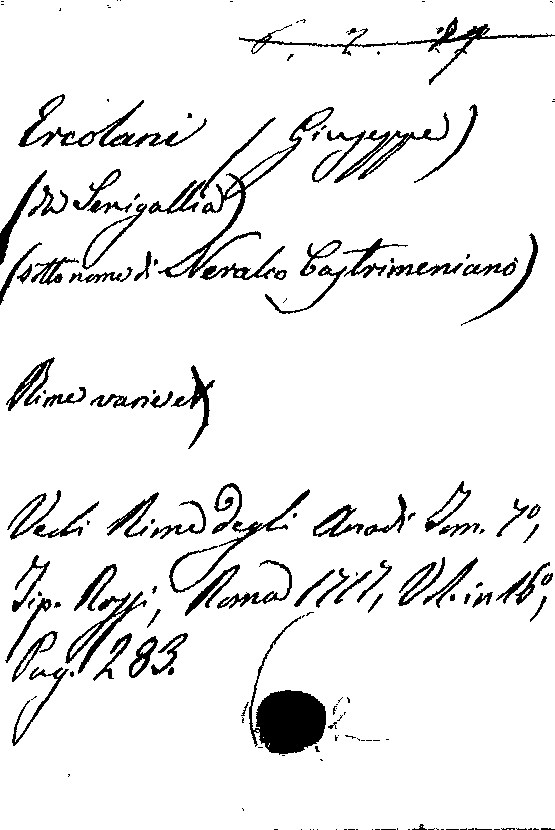 6. 2. 27
Ercolani (Giuseppe)
(da Senigallia)
(sotto nome di Neralco Castrimeniano)
Rime varie
Vedi Rime degli Arcadi Tom. 7º,
Tip. Rossi, Roma 1717, Vol. in 16º,
Pag. 283.